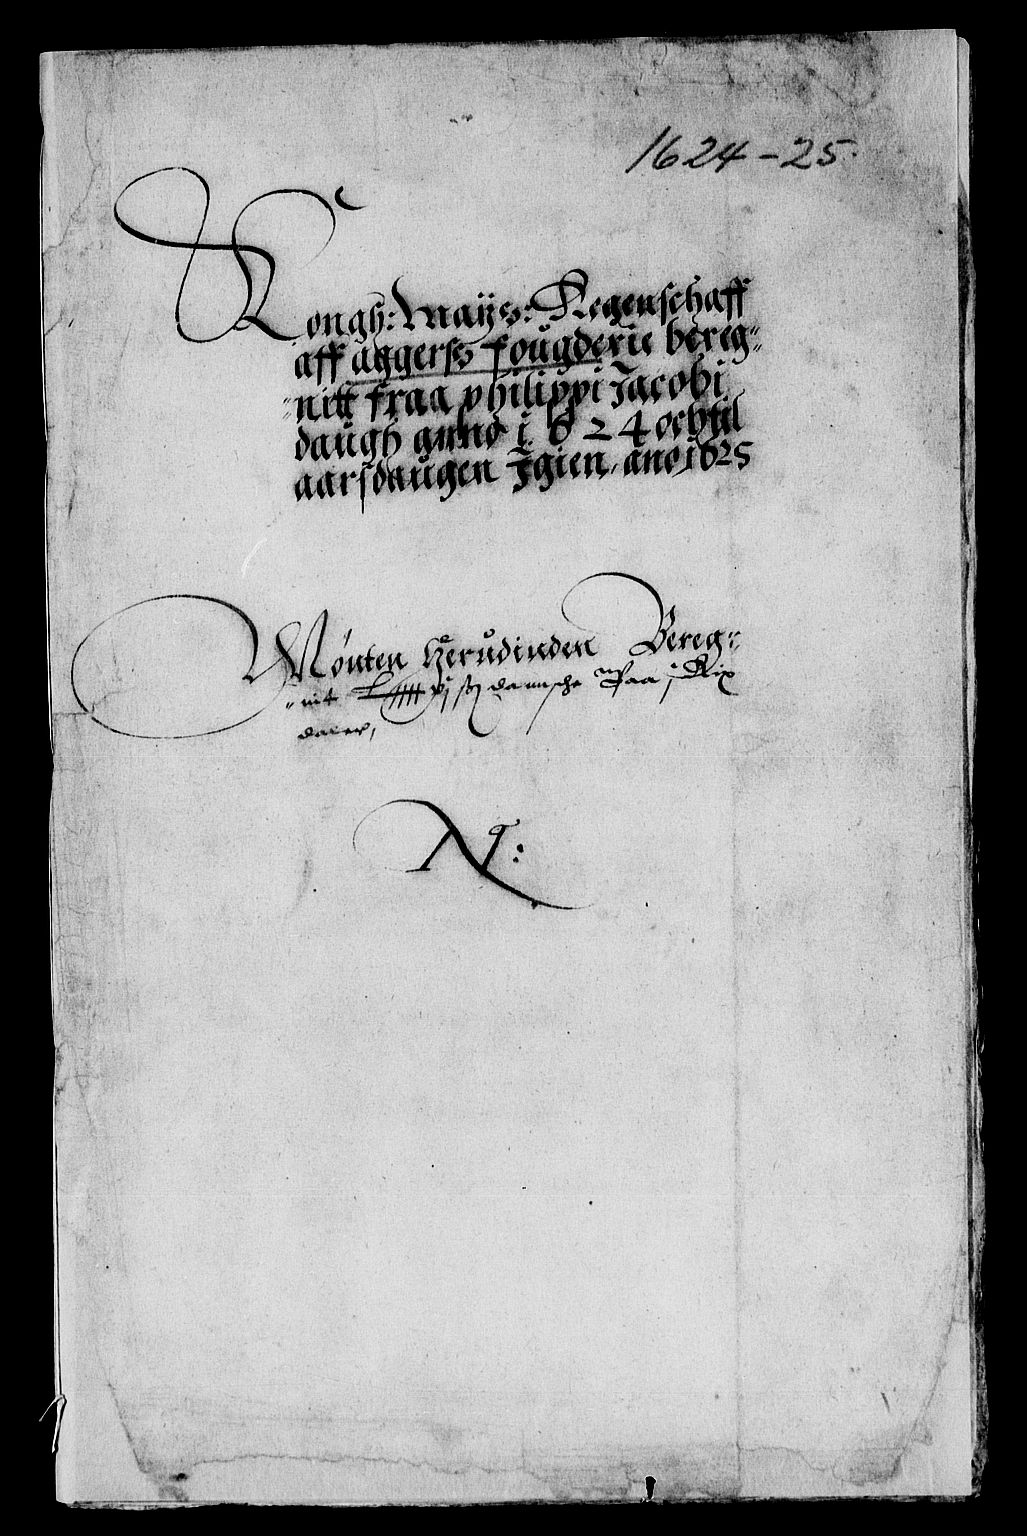 1624-25.
Kongh: Mayss: Regenschaff
aff aggerss fougderie bereg=
=nitt fraa philippi Jacobi
daugh anno i624 och til
aarsdaugen Igien, ano 1625
Mønten herudinden Bereg=
=nit danische Paa j Rix
daler,
N: